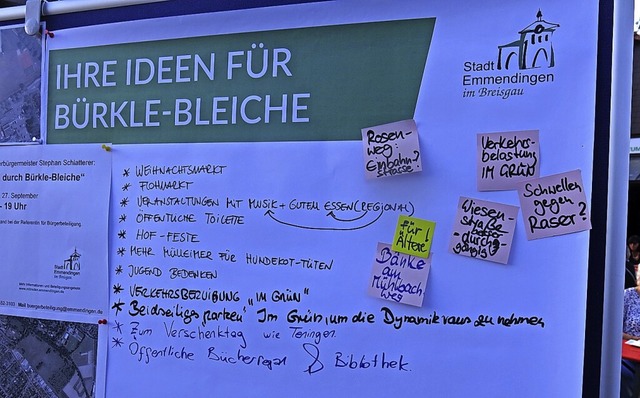 IHRE IDEEN FÜR
BÜRKLE-BLEICHE
Stadt
Emmendingen
im Breisgau
erbürgermeister Stephan Schlatterer:
durch Bürkle-Bleiche"
27. September
- 19 Uhr
Stadt
Emmendingen
Mail buergerbeteiligung@emmendingen.de
* WEIHNACHTSMARKT
* FLOHMARKT
* VERANSTALTUNGEN MIT MUSIK + GUTEM ESSEN (REGIONAL)
* ÖFFENTLICHE TOILETTE
* HOF-FESTE
* MEHR MÜLLEIMER FÜR HUNDEKOT-TÜTEN
* JUGEND BEDENKEN
* VERKEHRSBERUHIGUNG "IM GRÜN"
* Beidseitiges "parken" Im Grün, um die Dynamik raus zu nehmen
* Zum Verschenktag wie Teningen.
* Öffentliche Bücherregal & Bibliothek.
Rosen-
weg:
Einbahn?
strasse!
Verkehrs-
belastung
IM GRÜN
Schwellen
gegen
Raser?
Wiesen-
straße
besser
durch-
gängig
für
Ältere!
Bänke
am
Mühlbach
weg